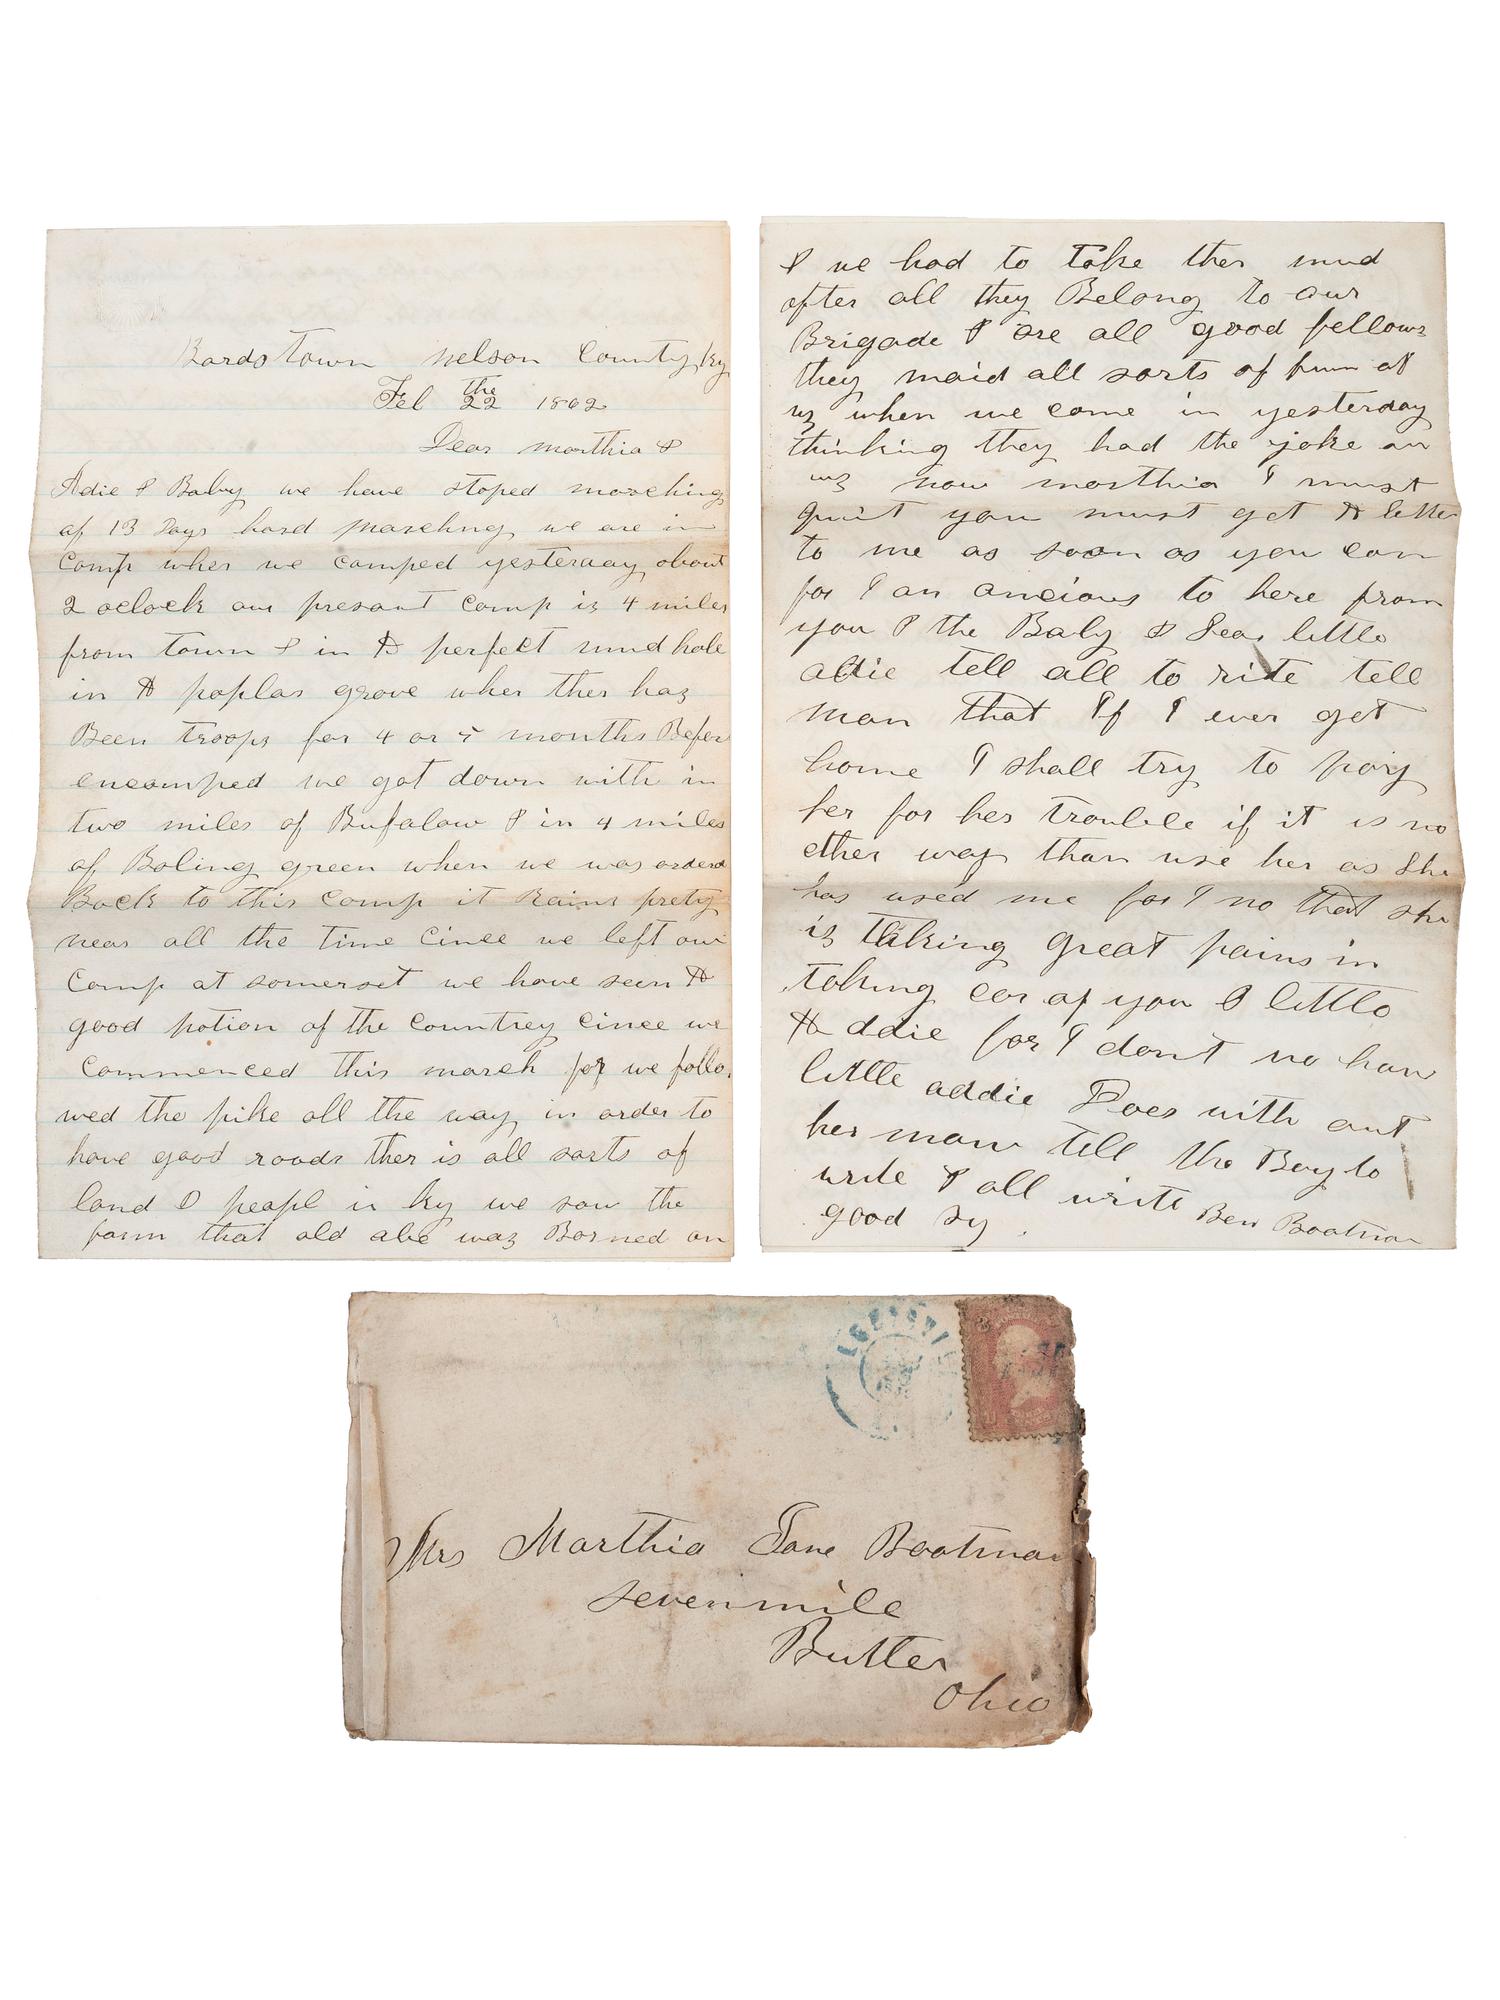 Bardstown nelson County, ky
Feb 22 the 1862
Dear marthia &
Adie & Baby we have stoped marching
af 13 Days hard marching we are in
Camp wher we camped yesterday about
2 oclock our presant camp is 4 miles
from town & in A perfect mud hole
in A poplar grove wher ther haz
Been troops for 4 or 5 months Befor
encamped we got down with in
two miles of Bufalow & in 4 miles
of Boling green when we was orderd
Back to this camp it Rains prety
near all the time cince we left our
Camp at somerset we have seen A
good potion of the countrey cince we
commenced this march for we follo
wed the pike all the way in order to
have good roads ther is all sorts of
land & peapl in ky we saw the
farm that old abe waz Borned on
& we had to take ther mud
after all they Belong to our
Brigade & are all good fellows
they maid all sorts of fun of
uz when we come in yesterday
thinking they had the joke on
uz now marthia I must
quit you must get A letter
to me as soon as you can
for I an ancious to here from
you & the Baby & Dear little
addie tell all to rite tell
man that If I ever get
home I shall try to pay
her for her trouble if it is no
other way than use her as She
has used me for I no that she
is taking great pains in
taking car of you & little
Addie for I dont no how
little addie Does with out
her maw tell the Boy to
write & all write
good by. Ben Boatman
Mrs Marthia Jane Boatman
sevenmile
Butler
Ohio